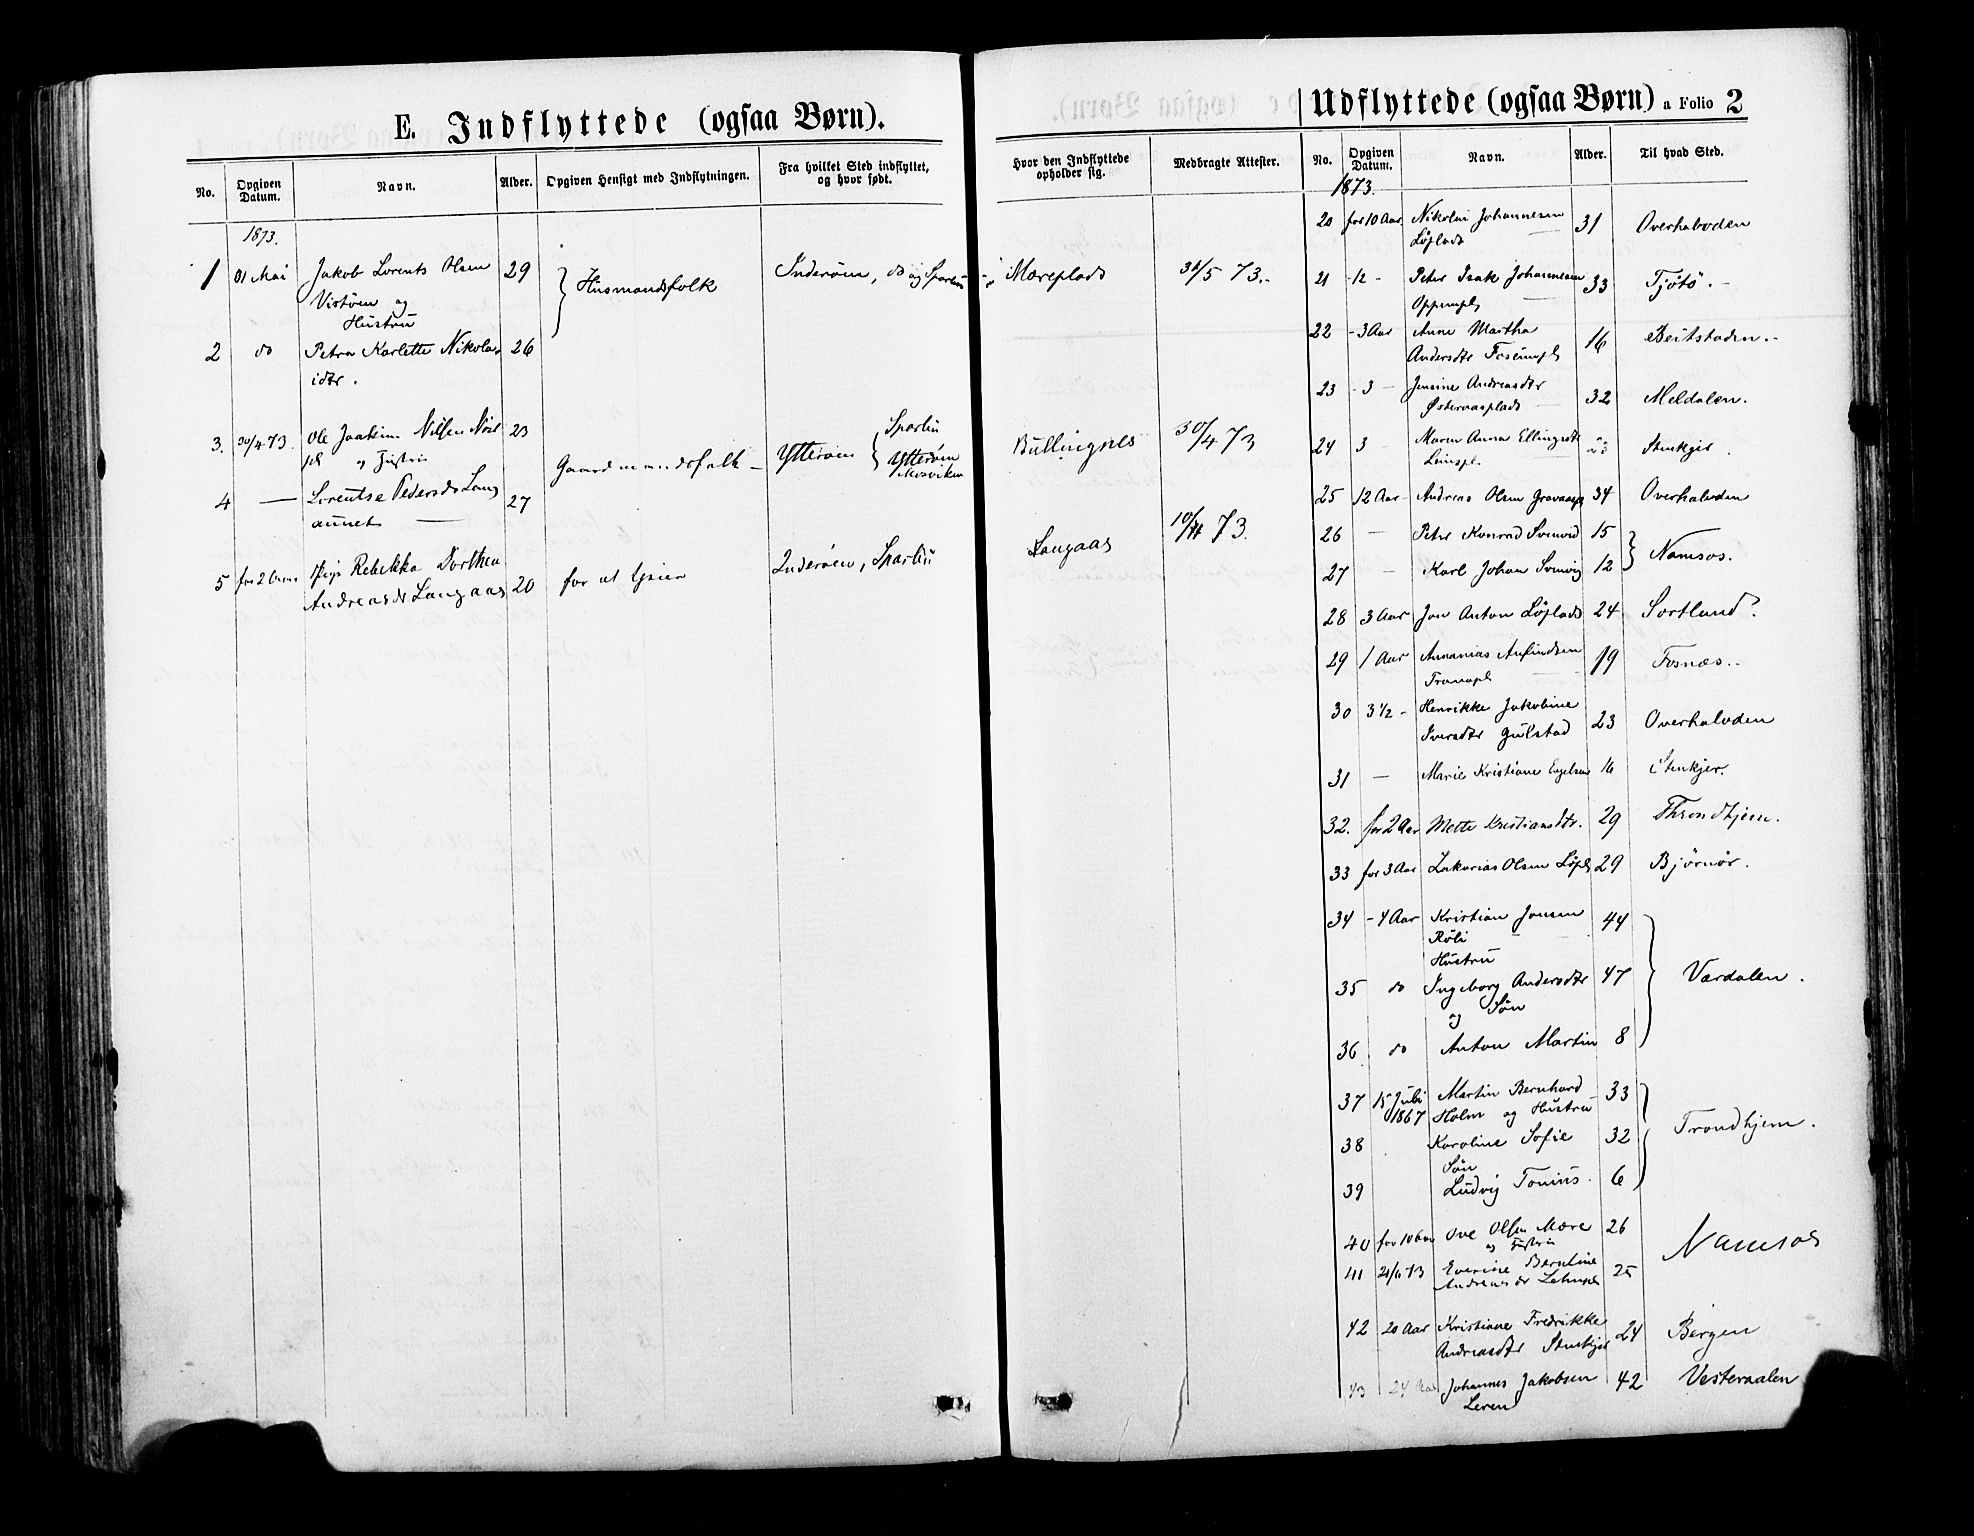 E. Indflyttede (ogsaa Børn).
No. Opgiven Datum. Navn. Alder. Opgiven Hensigt med Indflytningen. Fra hvilket Sted indflyttet, og hvor født. Hvor den Indflyttede opholder sig. Medbragte Attester.
1873.
1 Mai Jakob Lorents Olsen 29 Husmandsfolk Inderøen, do og Mæreplads 31/5 73.
og
Hustru
2 do Petra Karlette Nikolai 26
idtr.
3. 30/4 73. Ole Joakim Nilsen 23 Gaardmandsfolk Ytterøen Sparbu Bullingnes 30/4 73
pl og Hustru Ytterøen
Mosviken
4 — Lorentse Pedersdr Lang 27
aunet
5 for 2 Pige Rebekka Dorthea 20 for at tjene Inderøen, Sparbu Langaas 73.
Andreasdr Langaas
Udflyttede (ogsaa Børn) a Folio 2
No. Opgiven Datum. Navn. Alder. Til hvad Sted.
1873.
20 for 10 Aar Nikolai Johannesen 31 Overhalvden
Løplads
21 - 12 - Peter Isak Johannesen 33 Tjøtø.
22 - 3 Aar Anne Martha 16 Beitstaden.
Andersdtr
23 - 3 — Jensine Andreasdtr 32 Meldalen.
24 3 Maren Anna Ellingsdtr Stenkjer.
25 12 Aar Andreas Olsen 34 Overhalvden
26 — Peter Konrad 15 Namsos.
27 — Karl Johan 12
28 3 Aar Jon Anton Løplads 24 Sortland?
29 1 Aar Annanias 19 Fosnæs.
30 3½ - Henrikke Jakobine 23 Overhalvden
Iversdtr Gulstad
31 — Marie Kristiane 16 Stenkjer.
32. for 2 Aar Mette Kristiansdtr. 29 Throndhjem.
33 for 3 Aar Zakarias Olsen Løpl 29 Bjørnør.
34 - 4 Aar Kristian Jonsen 44 Værdalen.
Røli
Hustru
35 do Ingeborg Andersdtr 47
og Søn
36 do Anton Martin 8
37 15 Juli Martin Bernhard 33 Trondhjem.
1867 Holm og Hustru
38 Karoline Sofie 32
Søn
39 Ludvig Tonius. 6
40 for 10 Ove Olsen Mære 26 Namsos
og Hustru
41 Everine Berntine 25
Andreasdr
42 20 Aar Kristiane Fredrikke 24 Bergen
Andreasdtr Stenkjer
43 24 Aar Johannes Jakobsen 42 Vesteraalen
Leren